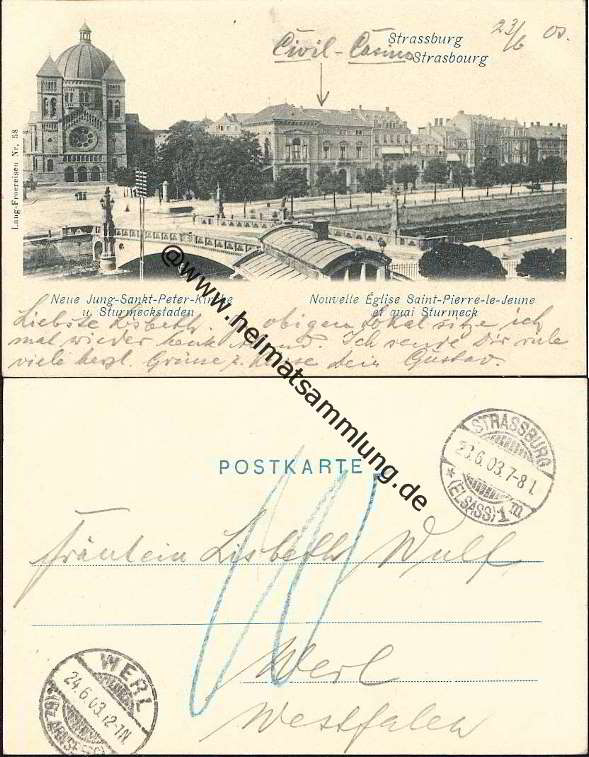 23/6 03.
Civil-Casino
Strassburg
Strasbourg
Lang-Froereisen Nr. 58
Neue Jung-Sankt-Peter-Kirche
u. Sturmeckstaden
Nouvelle Église Saint-Pierre-le-Jeune
et quai Sturmeck
Liebste Lisbeth. obigem Lokal sitze ich
mal wieder heute Ich sende Dir viele
viele herzl. Grüsse dein Gustav.
@www.heimatsammlung.de
POSTKARTE
STRASSBURG
23.6.03.7-8
* (ELSASS) 1 m
Fräulein Lisbeth Wulf
Werl
Westfalen
WERL
24.6.03.12-1N